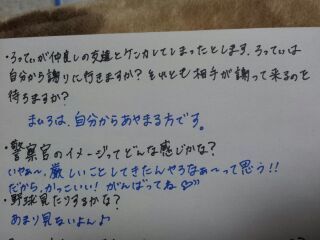 ・ろってぃが仲良しの友達とケンカしてしまったとします。ろってぃは
自分から謝りに行きますか？それとも相手が謝って来るのを
待ちますか？
まいろは、自分からあやまる方です。
・警察官のイメージってどんな感じかな？
いやぁ〜、厳しいことしてきたんやろなぁ〜って思う!!
だから、かっこいい！がんばってね♡
・野球見たりするかな？
あまり見ないよん♪